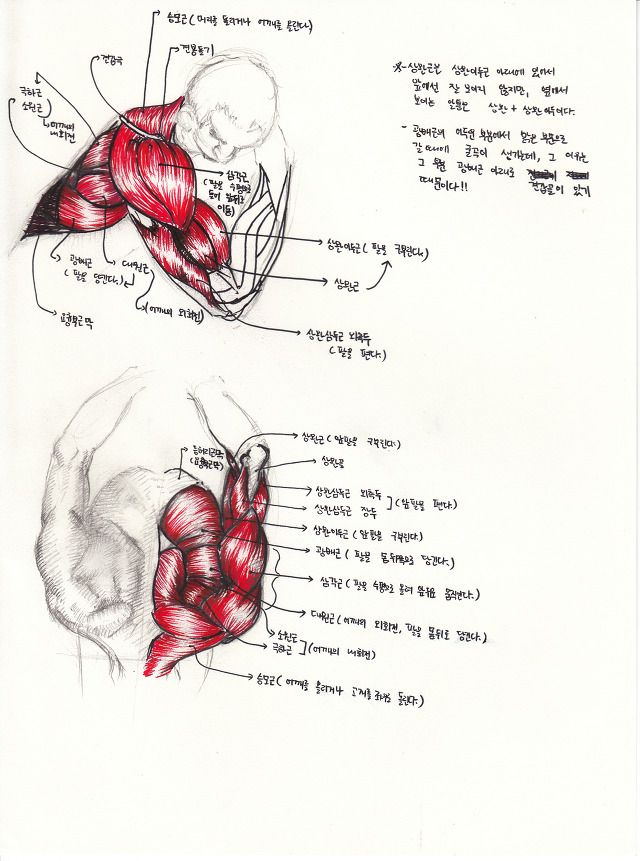 승모근 (머리를 돌리거나 어깨를 올린다.)
견봉돌기
견갑극
극하근
소원근
어깨의
내회전
삼각근
(팔을 수평으로
들어 앞뒤로
이동)
상완이두근 (팔을 구부린다.)
상완근
광배근
(팔을 당긴다.)
대원근
(어깨의 외회전)
요흉추근막
상완삼두근 외측두
(팔을 편다.)
※ - 상완근은 상완이두근 아래에 있어서
앞에선 잘 보이지 않지만, 옆에서
보이는 알통은 상완 + 상완이두이다.
- 광배근의 어두운 부분에서 밝은 부분으로
갈 때에 굴곡이 생기는데, 그 이유는
그 부분 광배근 아래로
견갑골이 있기
때문이다!!
등허리근막
(요흉추근막)
상완근 (앞팔을 구부린다.)
상완골
상완삼두근 외측두
상완삼두근 장두
(앞팔을 편다.)
상완이두근 (앞팔을 구부린다.)
광배근 (팔을 몸 뒤쪽으로 당긴다.)
삼각근 (팔을 수평으로 올려 앞뒤로 움직인다.)
대원근 (어깨의 외회전, 팔을 몸뒤로 당긴다.)
소원근
극하근
(어깨의 내회전)
승모근 (어깨를 올리거나 고개를 좌우로 돌린다.)